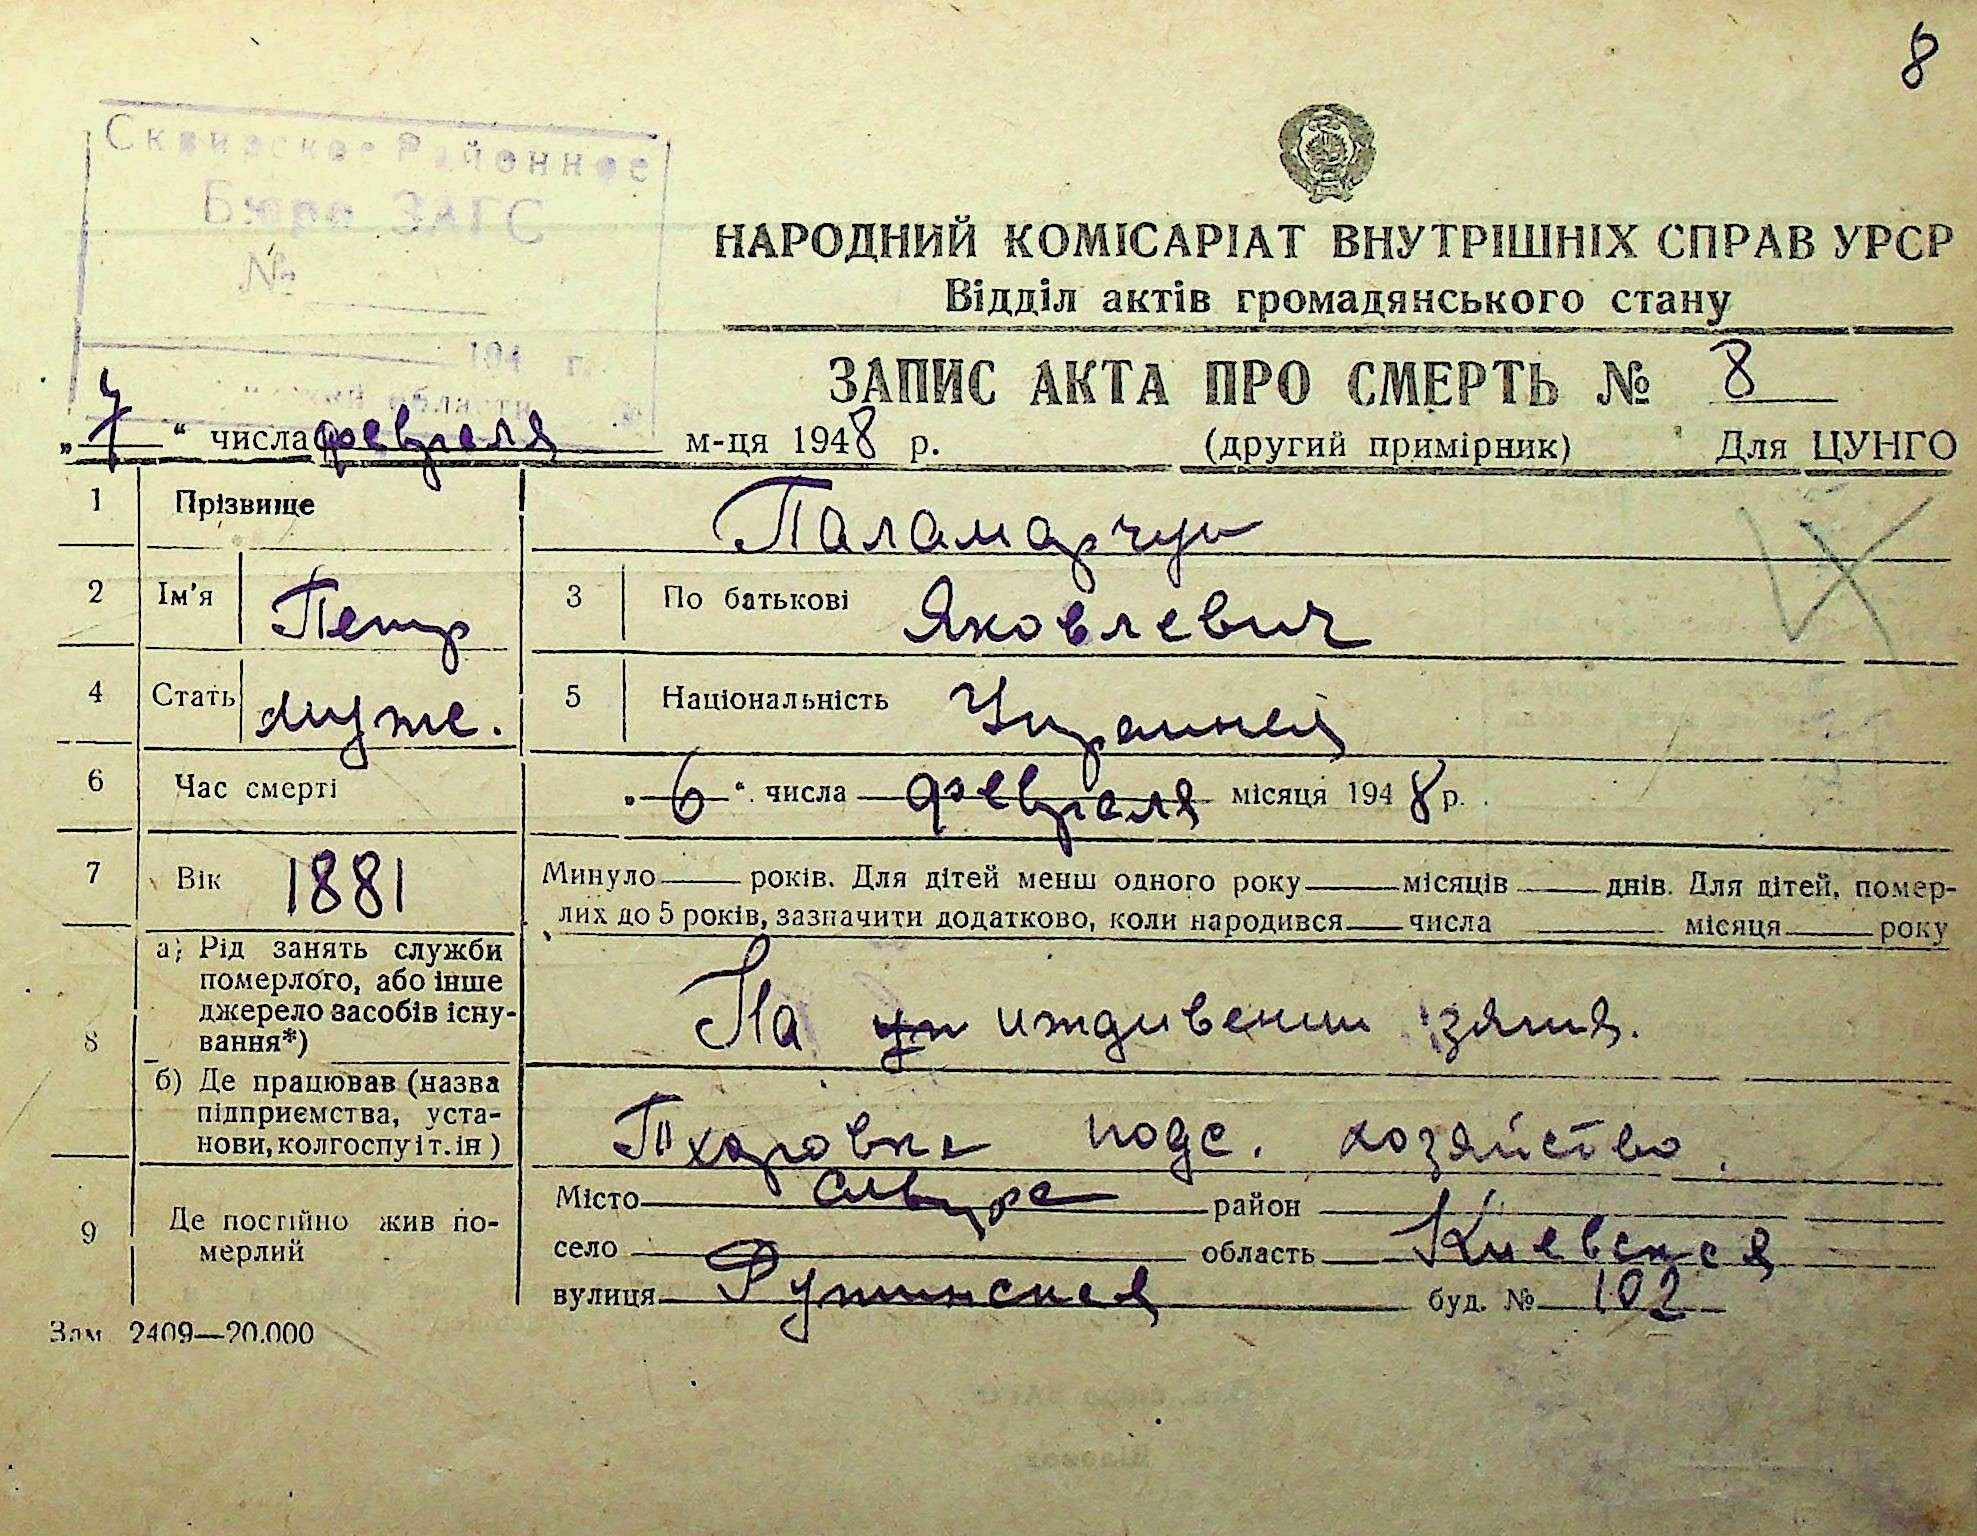 8
Районное
Бюро ЗАГС
№
194 г.
НАРОДНИЙ КОМІСАРІАТ ВНУТРІШНІХ СПРАВ УРСР
Відділ актів громадянського стану
ЗАПИС АКТА ПРО СМЕРТЬ № 8
„7“ числа февраля м-ця 1948 р. (другий примірник) Для ЦУНГО
1 Прізвище Паламарчук
2 Ім'я Петр 3 По батькові Яковлевич
4 Стать муже. 5 Національність Украинец
6 Час смерті „6“ числа февраля місяця 1948 р.
7 Вік 1881 Минуло років. Для дітей менш одного року місяців днів. Для дітей, помер-
лих до 5 років, зазначити додатково, коли народився числа місяця року
8 а) Рід занять служби
померлого, або інше
джерело засобів існу-
вання*)
На иждивении зятя.
б) Де працював (назва
підприємства, уста-
нови, колгоспу і т. ін)
подс. хозяйство.
9 Де постійно жив по-
мерлий
Місто район
село область Киевская
вулиця буд. № 102
Зам 2409—20.000